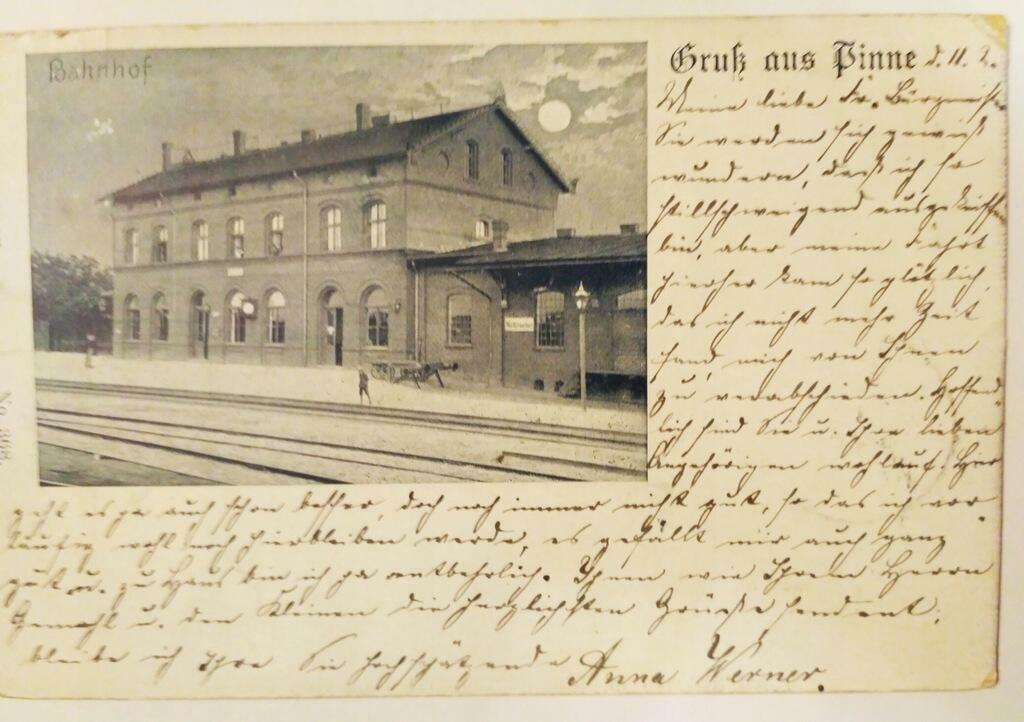 Bahnhof
Gruß aus Pinne d. 11. 2.
Meine liebe Fr. Bürgermeister
Sie werden sich gewiß
wundern, daß ich so
stillschweigend ausgekniffen
bin, aber meine Fahrt
hierher kam so plötzlich,
das ich nicht mehr Zeit
fand, mich von Ihnen
zu verabschieden. Hoffend-
lich sind Sie u. Ihre lieben
Angehörigen wohlauf. Hier
geht es ja auch schon besser, doch noch immer nicht gut, so das ich vor-
läufig wohl noch hierbleiben werde, es gefällt mir auch ganz
gut u. zu Haus bin ich ja entbehrlich. Ihnen wie Ihrem Herrn
Gemahl u. den Kleinen die herzlichsten Grüße sendend,
bleibe ich Ihre Sie hochschätzende Anna Werner.